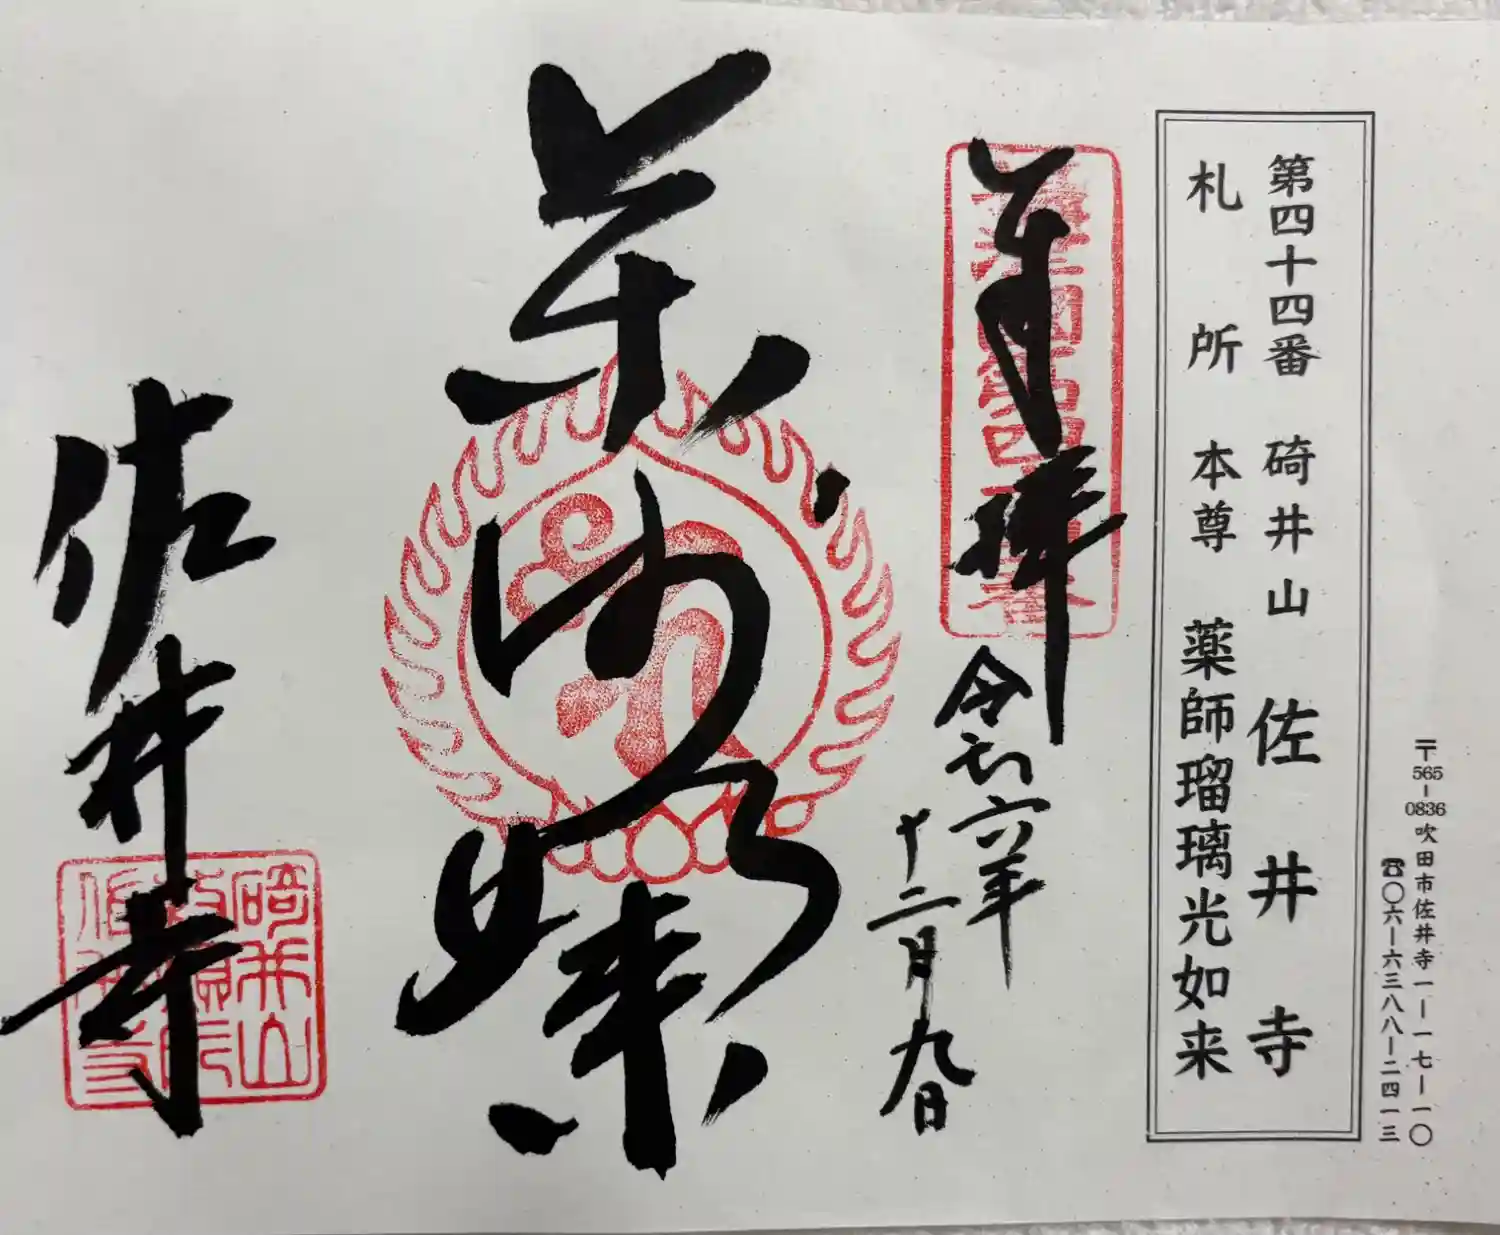 〒565-0836 吹田市佐井寺一ー一七ー一〇
☎〇六ー六三八八ー二四一三
第四十四番 碕井山 佐井寺
札所 本尊 薬師瑠璃光如来
奉拝
令和六年
十二月九日
薬師如来
佐井寺